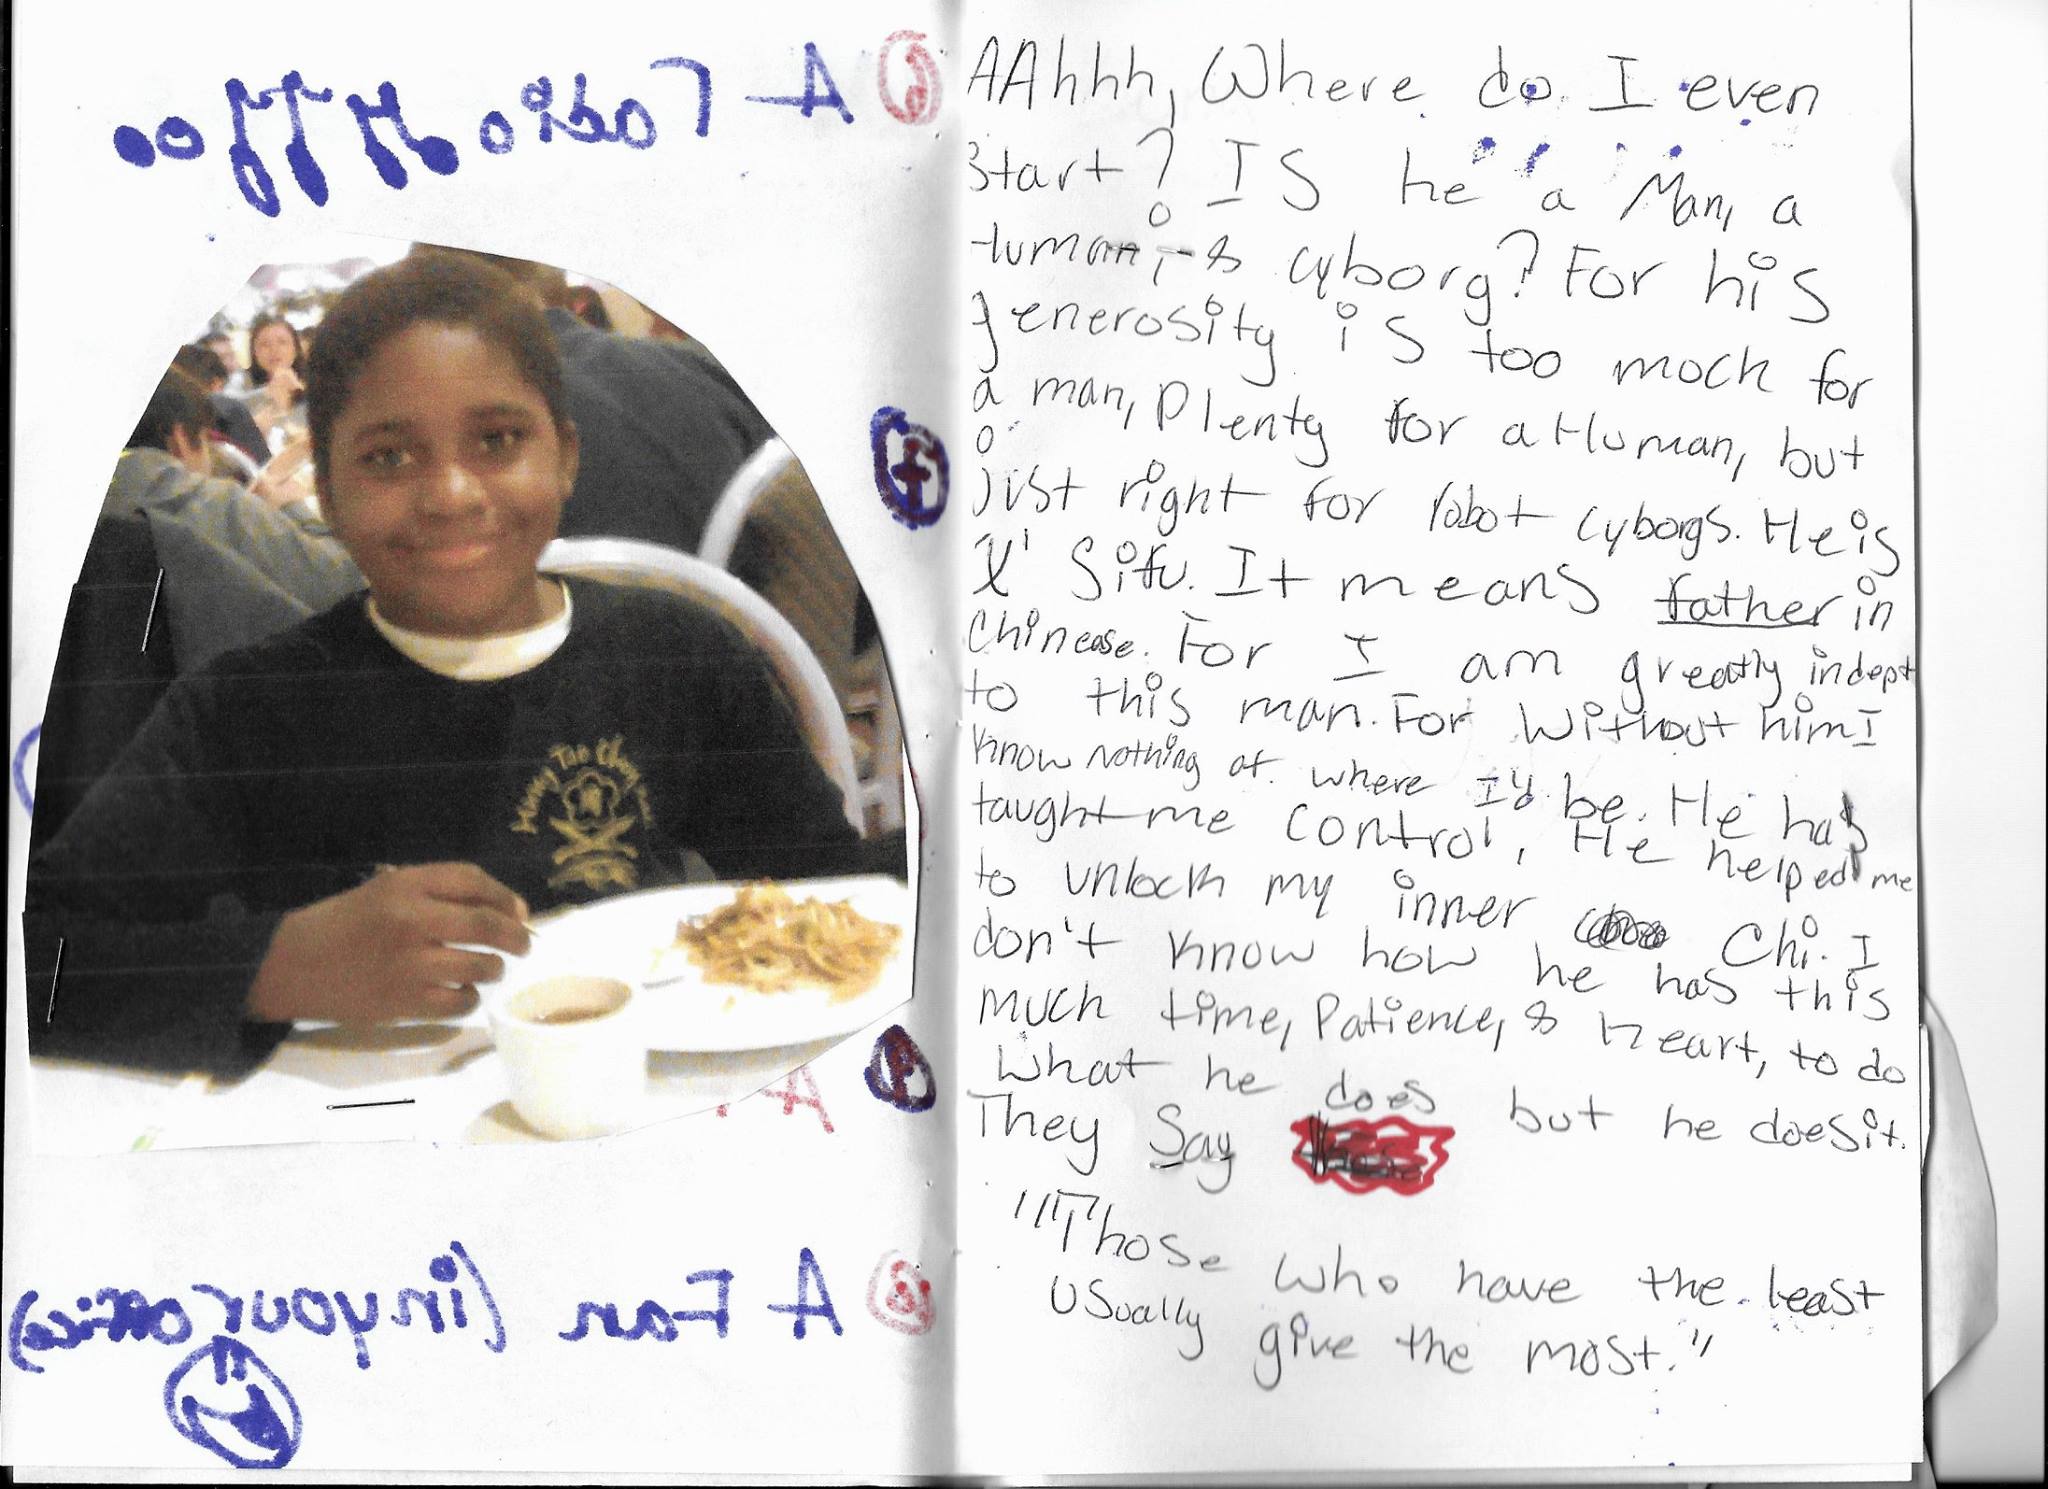 A Radio
A Fan (in your
AAhhh, Where do I even
Start? IS he a Man, a
Human, & cyborg? For his
generosity is too moch for
a man, Plenty for a Human, but
Just right for robot cyborgs. He is
Situ. It means father in
Chinease. For I am greatly indept
to this man. For Without him I
Know nothing of where I'd be. He has
taught me control, He helped me
to unlock my inner Chi. I
don't know how he has this
much time, Patience, & Heart, to do
What he does but he does it.
They Say
"Those who have the least
Usually give the most."